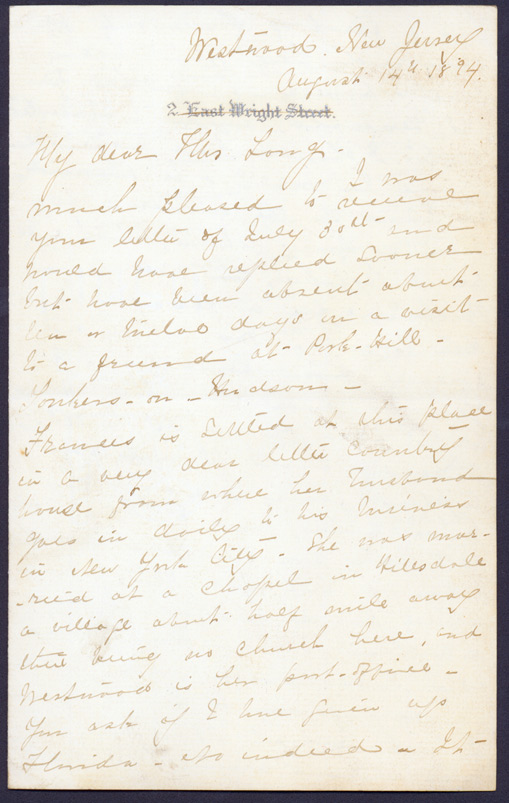 Westwood. New Jersey
August 14th 1894.
2 East Wright Street.
My dear Mrs Long.
I was
much pleased to receive
your letter of July 30th and
would have replied sooner
but have been absent about
ten or twelve days on a visit
to a friend at Park-Hill-
Yonkers-on-Hudson-
Frances is settled at this place
in a very dear little country
house from where her husband
goes in daily to his business
in New York City- She was mar-
-ried at a chapel in Hillsdale
a village about half mile away
there being no church here, and
Westwood is her post-office-
You ask if I have given up
Florida - No indeed - It-